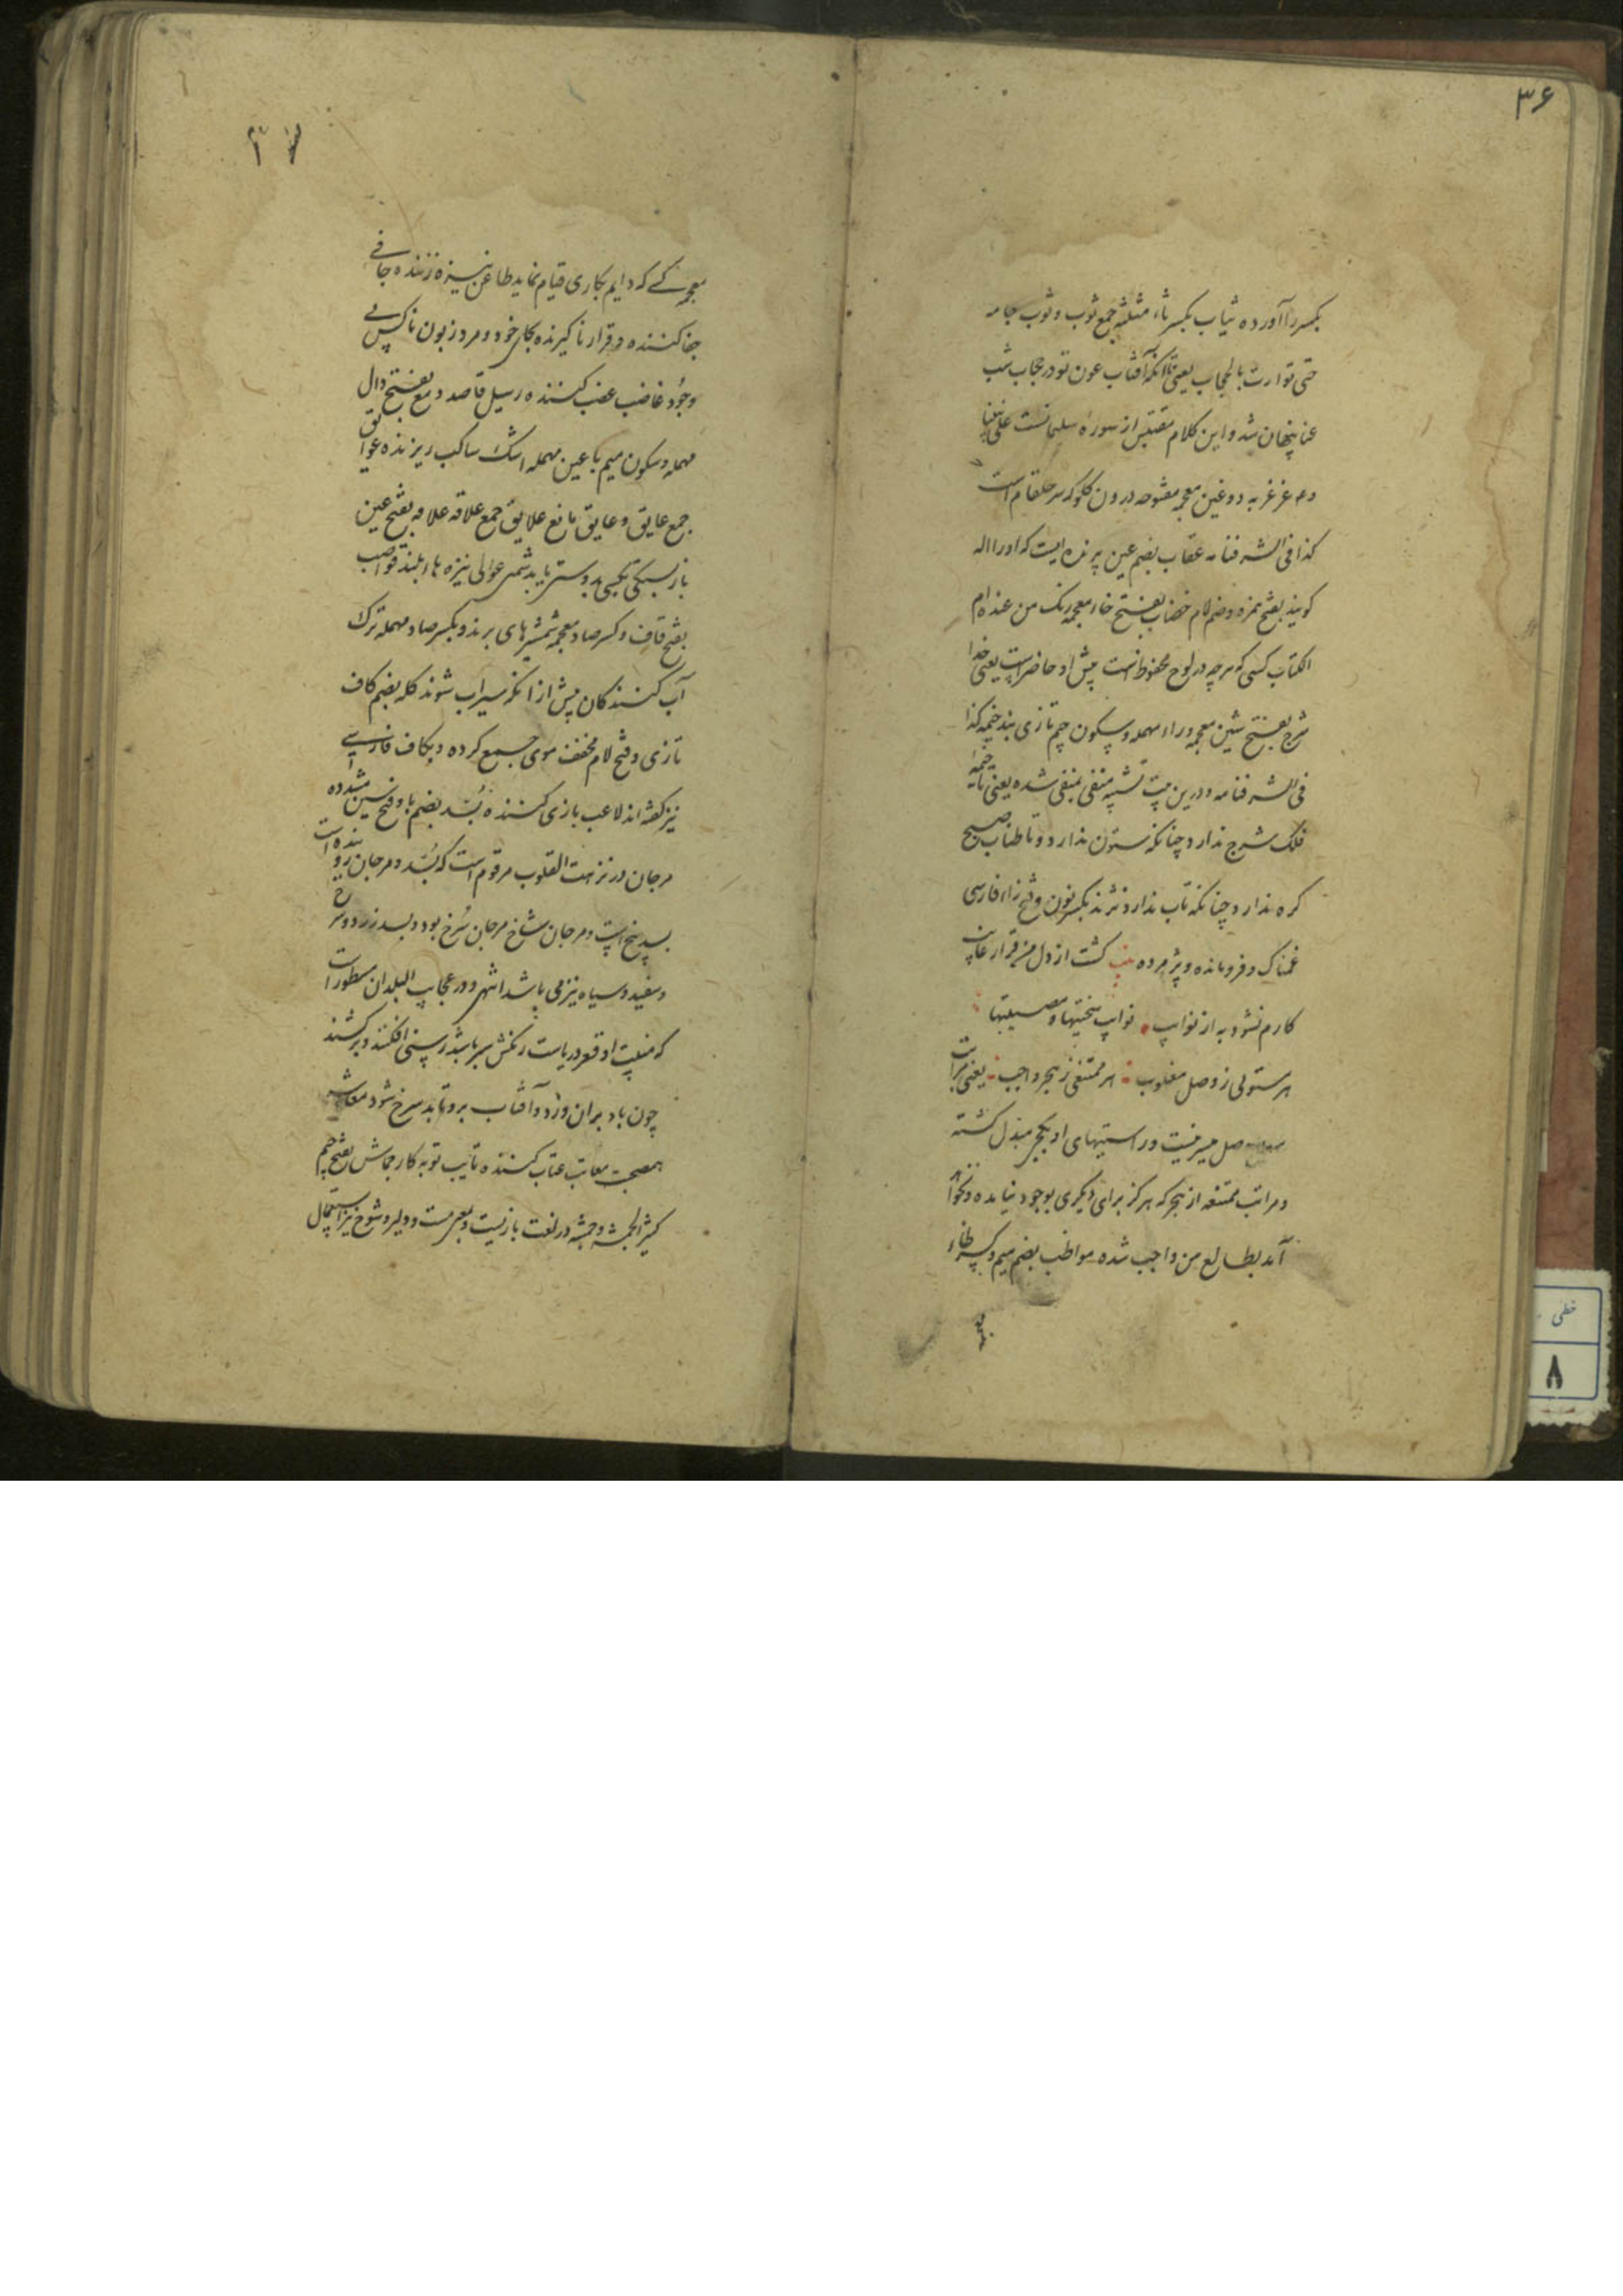 ۳۶
بکسر را آورده ثیاب بکسر ثاء مثلثه جمع ثوب و ثوب جامه
حتی توارت بالحجاب یعنی تا آنکه آفتاب عون تو در حجاب شب
عنا پنهان شد و این کلام مقتبس از سوره سلیمانست علی نبینا
و ۴ غرغر به دو غین معجمه مفتوحه درون کلو که سر حلقام است
کذا فی الشرفنامه عقاب بضم عین پرنده ایست که او را اله
کویند بفتح همزه و ضم لام خضاب بفتح خاء معجمه رنک من عنده ام
الکتاب کسی که هرچه در لوح محفوظ است پیش او حاضر است یعنی خدا
شرج بفتح شین معجمه و راء مهمله و سکون جیم تازی بند خیمه کذا
فی الشرفنامه و درین بیت تشبیه منفی بمنفی شده یعنی تا خیمه
فلک شرج ندارد چنانکه ستون ندارد و تا طناب صبح
کره ندارد چنانکه تاب ندارد نژند بکسر نون و فتح زاء فارسی
غمناک و فرومانده و پژمرده بیت کشت از دل من قرار غایب
کارم نشود به از نوایب نوایب سختیها و مصیبتها
هر مستولی ز وصل مغلوب هر ممتنعی ز هجر واجب یعنی مراتب
وصل میسر نیست و راستیهای او بکجی مبذل کشته
و مراتب ممتنعه از هجر که هرکز برای دیکری بوجود نیامده و نخواهد
آمد بطالع من واجب شده مواظب بضم میم و کسر ظاء
معجمه
۳۷
معجمه کسی که دایم بکاری قیام نماید طاعن نیزه زننده جافی
جفا کننده و قرار ناکیرنده بجای خود و مرد زبون ناکس بی
وجود غاضب غضب کننده رسیل قاصد دمع بفتح دال
مهمله و سکون میم با عین مهمله اشک ساکب ریزنده عوایق
جمع عایق و عایق مانع علایق جمع علاقه علاقه بفتح عین
باز بستکی بکسی و دوستی باید شمس عوالی نیزه های بلند قواضب
بفتح قاف و کسر ضاد معجمه شمشیرهای برنده و بکسر صاد مهمله ترک
آب کنندکان پیش از آنکه سیراب شوند کله بضم کاف
تازی و فتح لام مخفف موی جمع کرده و بکاف فارسی
نیز کفته اند لاعب بازی کننده بسد بضم با و فتح سین مشدده
مرجان در نزهت القلوب مرقوم است که بسد و مرجان روینده است
بسد بیخ است و مرجان شاخ مرجان سرخ بود و بسد زرد و سرخ
و سفید و سیاه نیز می باشد انتهی و در عجایب البلدان مسطور است
که منبت او قعر دریاست رنکش سبز باشد رسنی افکنند و برکشند
چون باد بران وزد و آفتاب بروتابد سرخ شود معاشر
همصحبت معاتب عتاب کننده تایب توبه کار جماش بفتح جیم
کثیر الجمشه و جمشه در لغت بازیست و بمعنی مست و دلیر و شوخ نیز استعمال
خطی
۸